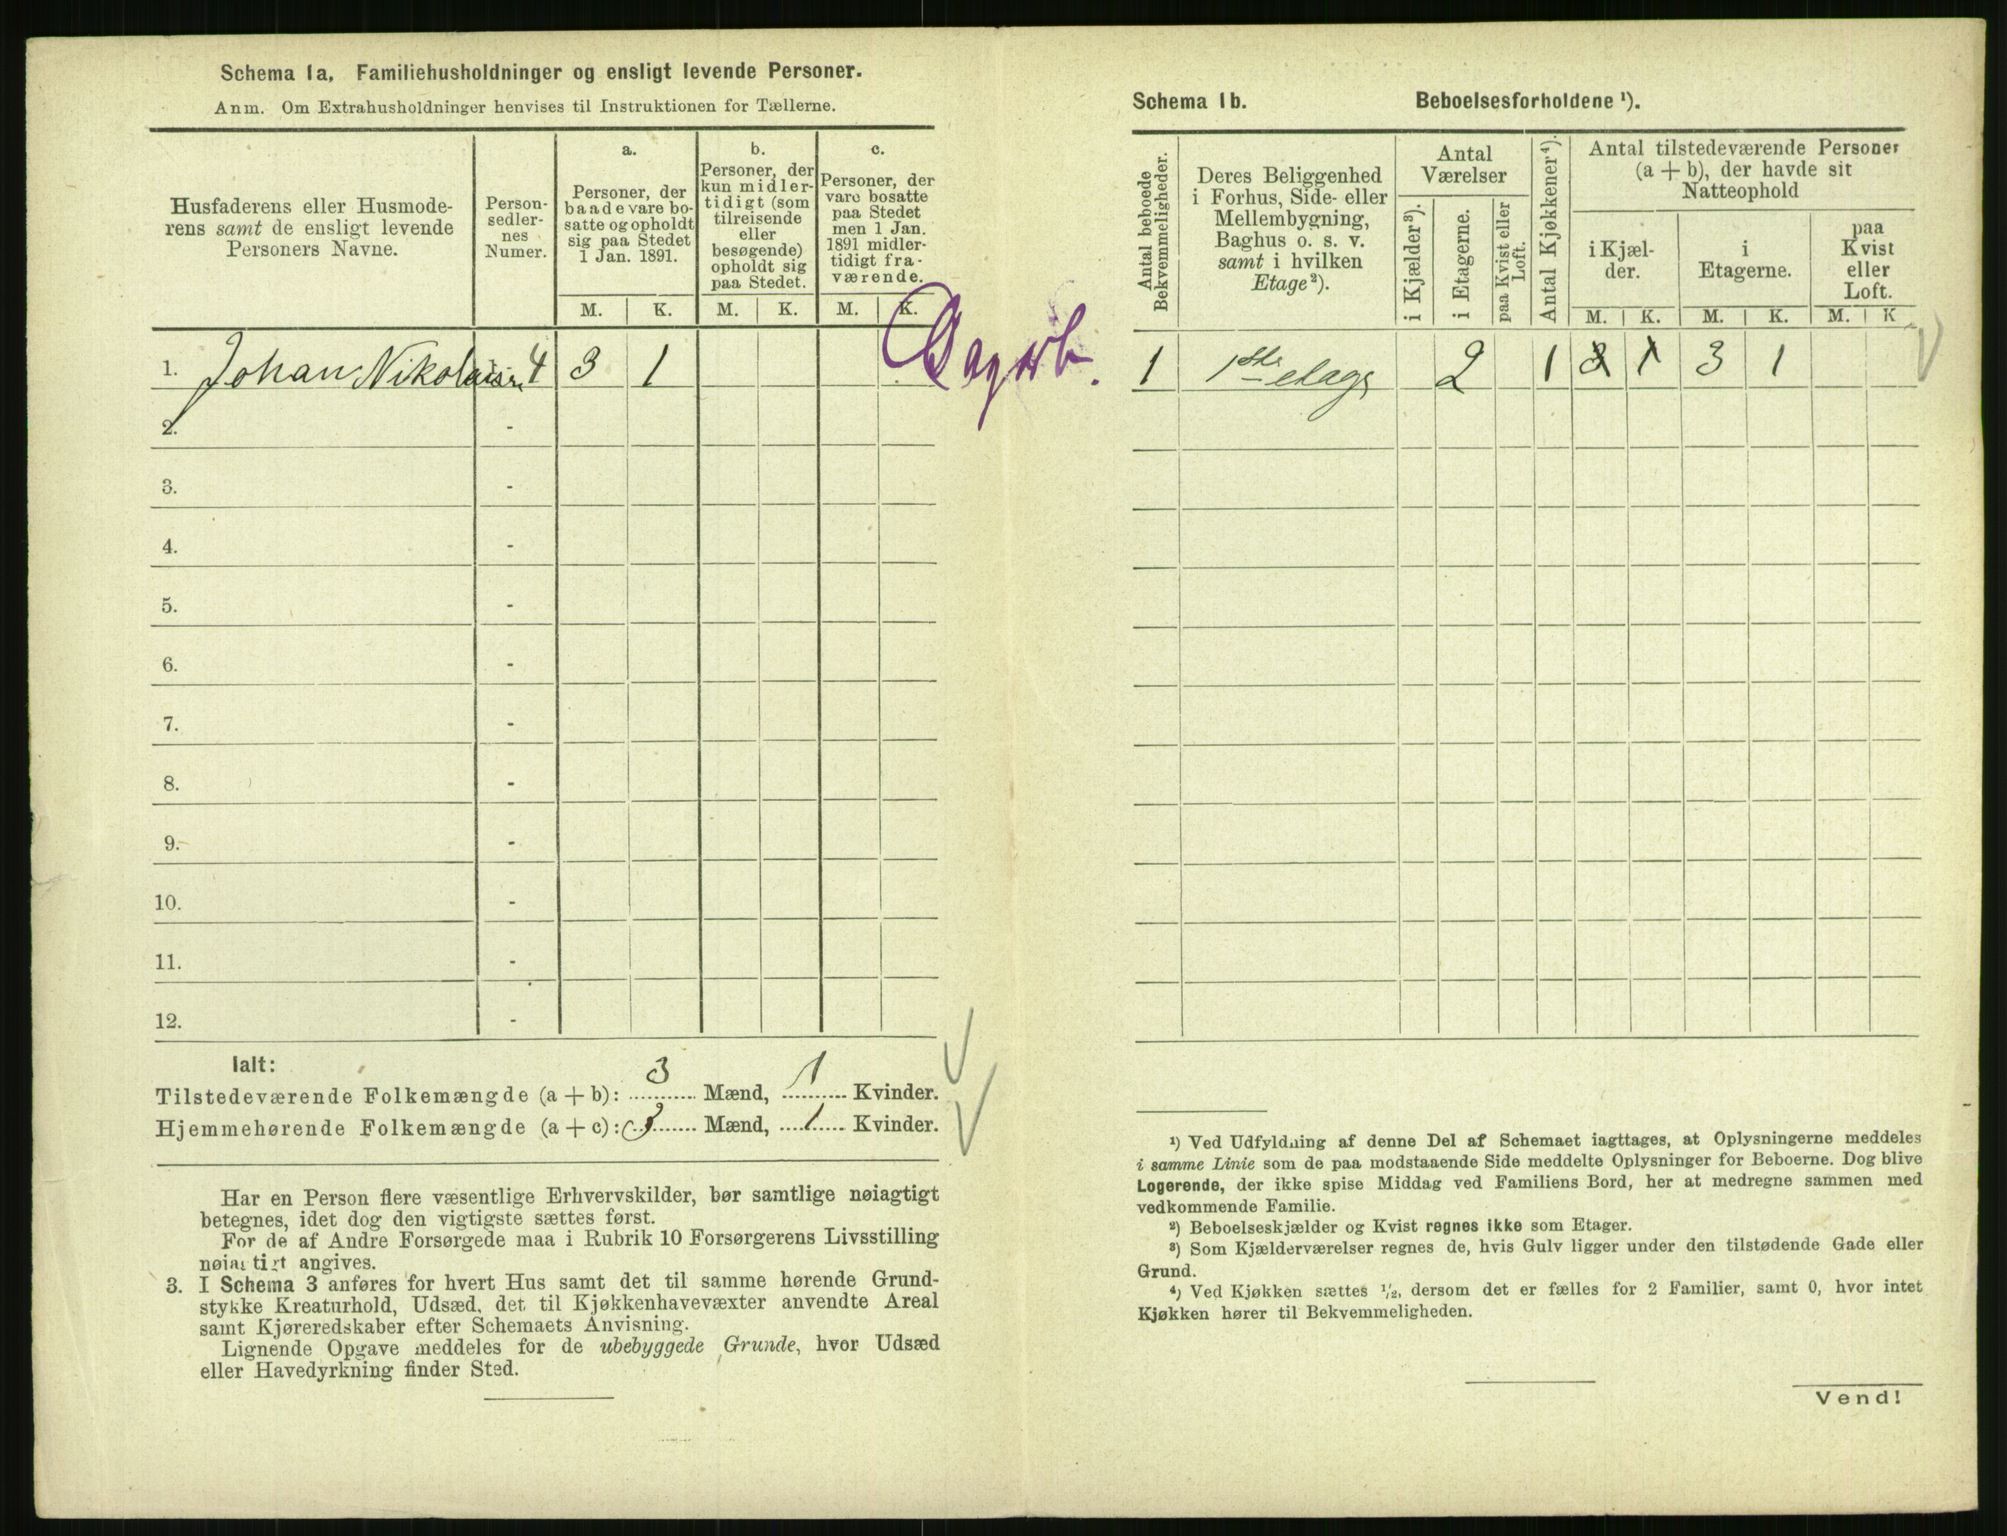 Schema 1a. Familiehusholdninger og ensligt levende Personer.
Anm. Om Extrahusholdninger henvises til Instruktionen for Tællerne.
Husfaderens eller Husmode-
rens samt de ensligt levende
Personers Navne.
Person-
sedler-
nes
Numer.
a.
Personer, der
baade vare bo-
satte og opholdt
sig paa Stedet
1 Jan. 1891.
b.
Personer, der
kun midler-
tidigt (som
tilreisende
eller
besøgende)
opholdt sig
paa Stedet.
c.
Personer, der
vare bosatte
paa Stedet
men 1 Jan.
1891 midler-
tidigt fra-
værende.
M. K. M. K. M. K.
1. Johan Nikolaisen 4 3 1
2. -
3. -
4. -
5. -
6. -
7. -
8. -
9. -
10. -
11. -
12. -
Ialt:
Tilstedeværende Folkemængde (a + b): 3 Mænd, 1 Kvinder.
Hjemmehørende Folkemængde (a + c): 3 Mænd, 1 Kvinder.
Har en Person flere væsentlige Erhvervskilder, bør samtlige nøiagtigt
betegnes, idet dog den vigtigste sættes først.
For de af Andre Forsørgede maa i Rubrik 10 Forsørgerens Livsstilling
nøiagtigt angives.
3. I Schema 3 anføres for hvert Hus samt det til samme hørende Grund-
stykke Kreaturhold, Udsæd, det til Kjøkkenhavevæxter anvendte Areal
samt Kjøreredskaber efter Schemaets Anvisning.
Lignende Opgave meddeles for de ubebyggede Grunde, hvor Udsæd
eller Havedyrkning finder Sted.
Schema 1b. Beboelsesforholdene ¹).
Antal beboede
Bekvemmeligheder.
Deres Beliggenhed
i Forhus, Side- eller
Mellembygning,
Baghus o. s. v.
samt i hvilken
Etage²).
Antal
Værelser
i Kjælder³).
i Etagerne.
paa Kvist eller
Loft.
Antal Kjøkkener⁴).
Antal tilstedeværende Personer
(a + b), der havde sit
Natteophold
i Kjæl-
der.
i
Etagerne.
paa
Kvist
eller
Loft.
M. K. M. K. M. K
1 1ste etage 2 1 3 1 3 1
¹) Ved Udfyldning af denne Del af Schemaet iagttages, at Oplysningerne meddeles
i samme Linie som de paa modstaaende Side meddelte Oplysninger for Beboerne. Dog blive
Logerende, der ikke spise Middag ved Familiens Bord, her at medregne sammen med
vedkommende Familie.
²) Beboelseskjælder og Kvist regnes ikke som Etager.
³) Som Kjælderværelser regnes de, hvis Gulv ligger under den tilstødende Gade eller
Grund.
⁴) Ved Kjøkken sættes 1/2, dersom det er fælles for 2 Familier, samt 0, hvor intet
Kjøkken hører til Bekvemmeligheden.
Vend!